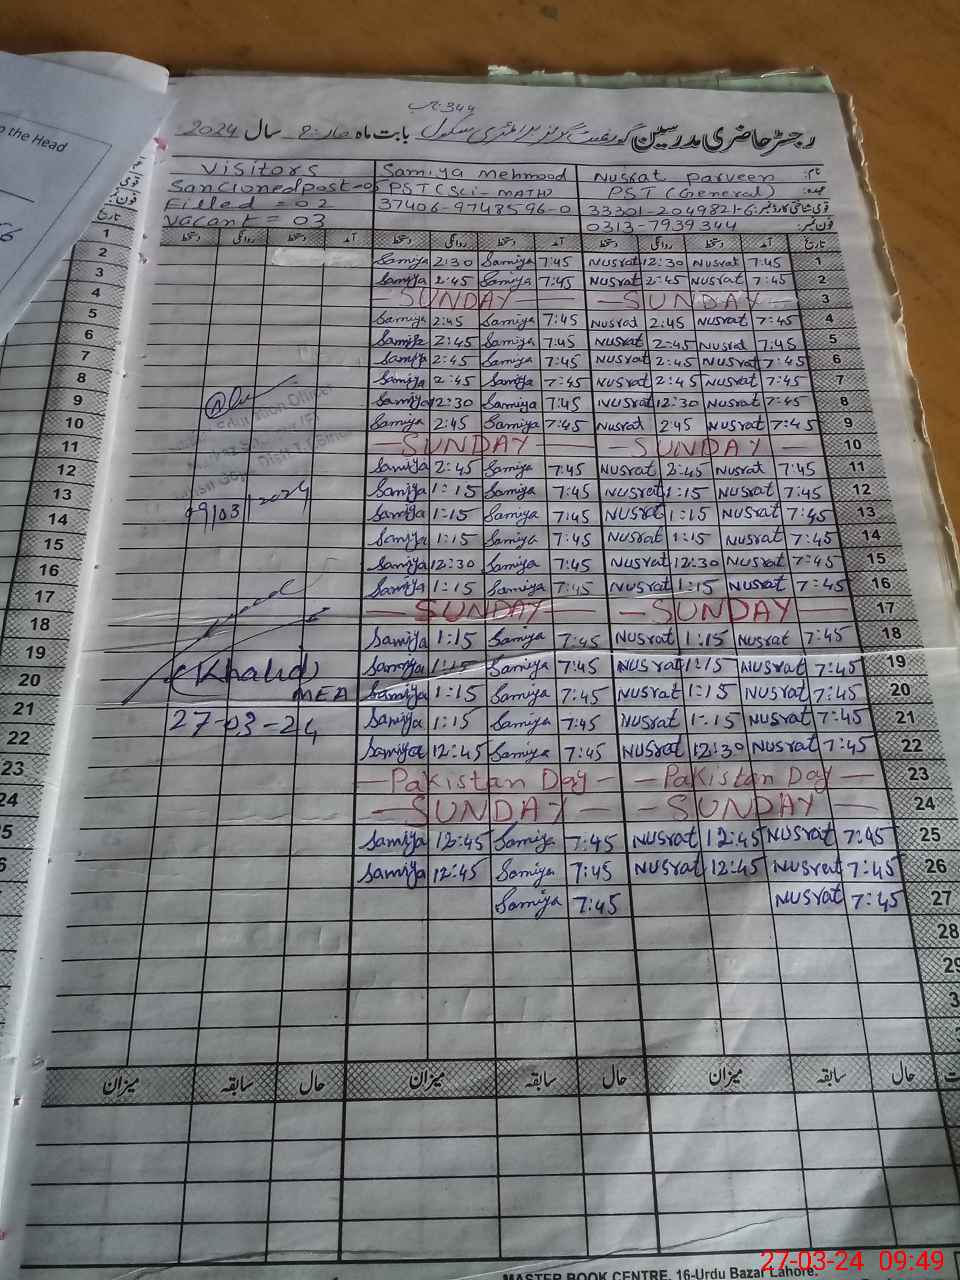 o the Head
رجسٹر حاضری مدرسین گورنمنٹ گرلز پرائمری سکول بابت ماہ مارچ سال 2024
Visitors Samiya Mehmood Nusrat Parveen نام:
Sanctionedpost=05 PST(Sci-MATH) PST (General) عہدہ:
Filled = 02 37406-9748596-0 33301-2049821-6 قومی شناختی کارڈ نمبر:
Vacant = 03 0313-7939344 فون نمبر:
دستخط روانگی دستخط آمد دستخط روانگی دستخط آمد دستخط روانگی دستخط آمد تاریخ
Samiya 2:30 Samiya 7:45 Nusrat 12:30 Nusrat 7:45 1
Samiya 2:45 Samiya 7:45 Nusrat 2:45 Nusrat 7:45 2
SUNDAY SUNDAY 3
Samiya 2:45 Samiya 7:45 Nusrat 2:45 Nusrat 7:45 4
Samiya 2:45 Samiya 7:45 Nusrat 2:45 Nusrat 7:45 5
Samiya 2:45 Samiya 7:45 Nusrat 2:45 Nusrat 7:45 6
Samiya 2:45 Samiya 7:45 Nusrat 2:45 Nusrat 7:45 7
Samiya 12:30 Samiya 7:45 Nusrat 12:30 Nusrat 7:45 8
Samiya 2:45 Samiya 7:45 Nusrat 2:45 Nusrat 7:45 9
SUNDAY SUNDAY 10
Samiya 2:45 Samiya 7:45 Nusrat 2:45 Nusrat 7:45 11
Samiya 1:15 Samiya 7:45 Nusrat 1:15 Nusrat 7:45 12
Samiya 1:15 Samiya 7:45 Nusrat 1:15 Nusrat 7:45 13
Samiya 1:15 Samiya 7:45 Nusrat 1:15 Nusrat 7:45 14
Samiya 12:30 Samiya 7:45 Nusrat 12:30 Nusrat 7:45 15
Samiya 1:15 Samiya 7:45 Nusrat 1:15 Nusrat 7:45 16
SUNDAY SUNDAY 17
Samiya 1:15 Samiya 7:45 Nusrat 1:15 Nusrat 7:45 18
Samiya 1:15 Samiya 7:45 Nusrat 1:15 Nusrat 7:45 19
Samiya 1:15 Samiya 7:45 Nusrat 1:15 Nusrat 7:45 20
Samiya 1:15 Samiya 7:45 Nusrat 1:15 Nusrat 7:45 21
Samiya 12:45 Samiya 7:45 Nusrat 12:30 Nusrat 7:45 22
Pakistan Day Pakistan Day 23
SUNDAY SUNDAY 24
Samiya 12:45 Samiya 7:45 Nusrat 12:45 Nusrat 7:45 25
Samiya 12:45 Samiya 7:45 Nusrat 12:45 Nusrat 7:45 26
Samiya 7:45 Nusrat 7:45 27
28
29
Education Officer
09/03/2024
(Khalid)
MEA
27-03-24
میزان سابقہ حال میزان سابقہ حال میزان سابقہ حال
تاریخ
1
2
3
4
5
6
7
8
9
10
11
12
13
14
15
16
17
18
19
20
21
22
23
24
MASTER BOOK CENTRE, 16-Urdu Bazar Lahore.
27-03-24 09:49